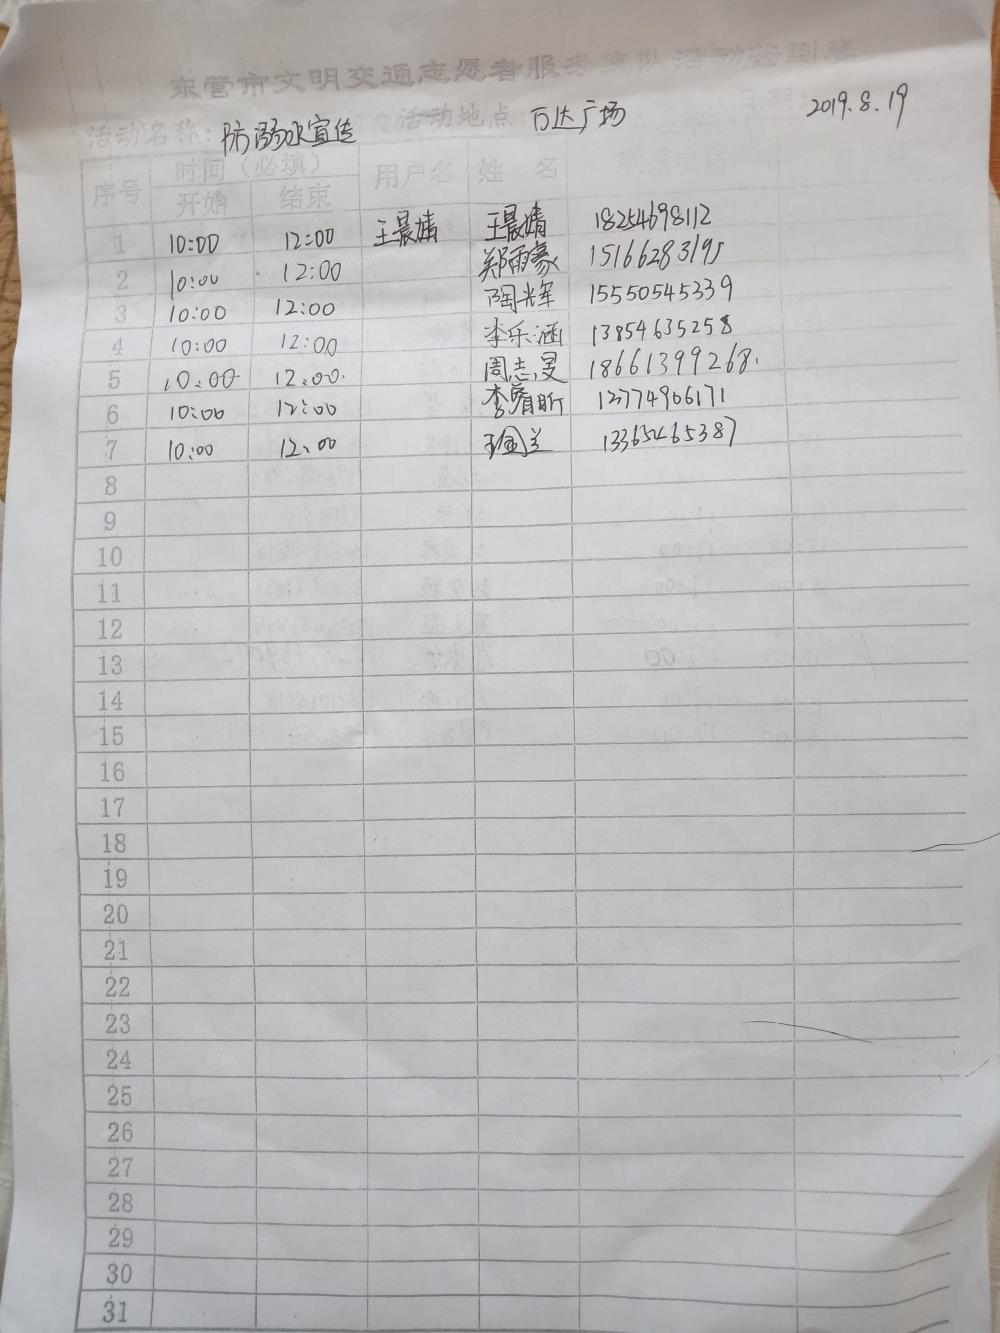 东营市文明交通志愿者服务支队活动签到表
活动名称: 防溺水宣传 活动地点: 万达广场 2019.8.19
序号 时间（必填） 用户名 姓 名 联系电话
开始 结束
1 10:00 12:00 王晨婧 王晨婧 18254698112
2 10:00 12:00 郑雨豪 15166283195
3 10:00 12:00 陶光辉 15550545339
4 10:00 12:00 李乐涵 13854635258
5 10:00 12:00 周志旻 18661399268
6 10:00 12:00 李睿昕 12774906171
7 10:00 12:00 13365465387
8
9
10
11
12
13
14
15
16
17
18
19
20
21
22
23
24
25
26
27
28
29
30
31